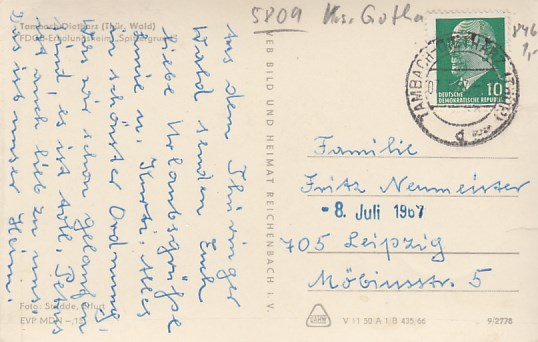 Tambach-Dietharz (Thür. Wald)
FDGB-Erholungsheim „Spittergrund"
5809 Krs. Gotha
846
1,-
TAMBACH-DIETHARZ
10
DEUTSCHE
DEMOKRATISCHE REPUBLIK
Aus dem Thüringer
Wald senden Euch
liebe Urlaubsgrüße
u. Kurti. Alles
in schönster Ordnung,
was wir schon gelaufen
sind, es ist toll. Petrus
ist auch lieb zu uns.
Das ist unser Heim.
VEB BILD UND HEIMAT REICHENBACH I. V.
Familie
Fritz Neumeister
-8. Juli 1967
705 Leipzig
Möbiusstr. 5
Foto: Straube, Erfurt
EVP MDN -,15
V 11 50 A 1 B 435/66
9-2778